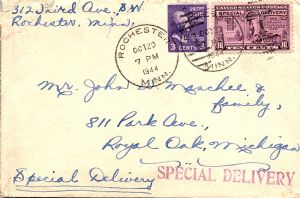 312 Third Ave., S.W.
Rochester, Minn.
ROCHESTER
OCT 20
7 PM
1944
MINN.
3 CENTS 3
UNITED STATES POSTAGE
SPECIAL DELIVERY
10 TEN CENTS 10
1944
MINN.
Mr. John
family,
811 Park Ave.,
Royal Oak, Michigan
Special Delivery
SPECIAL DELIVERY